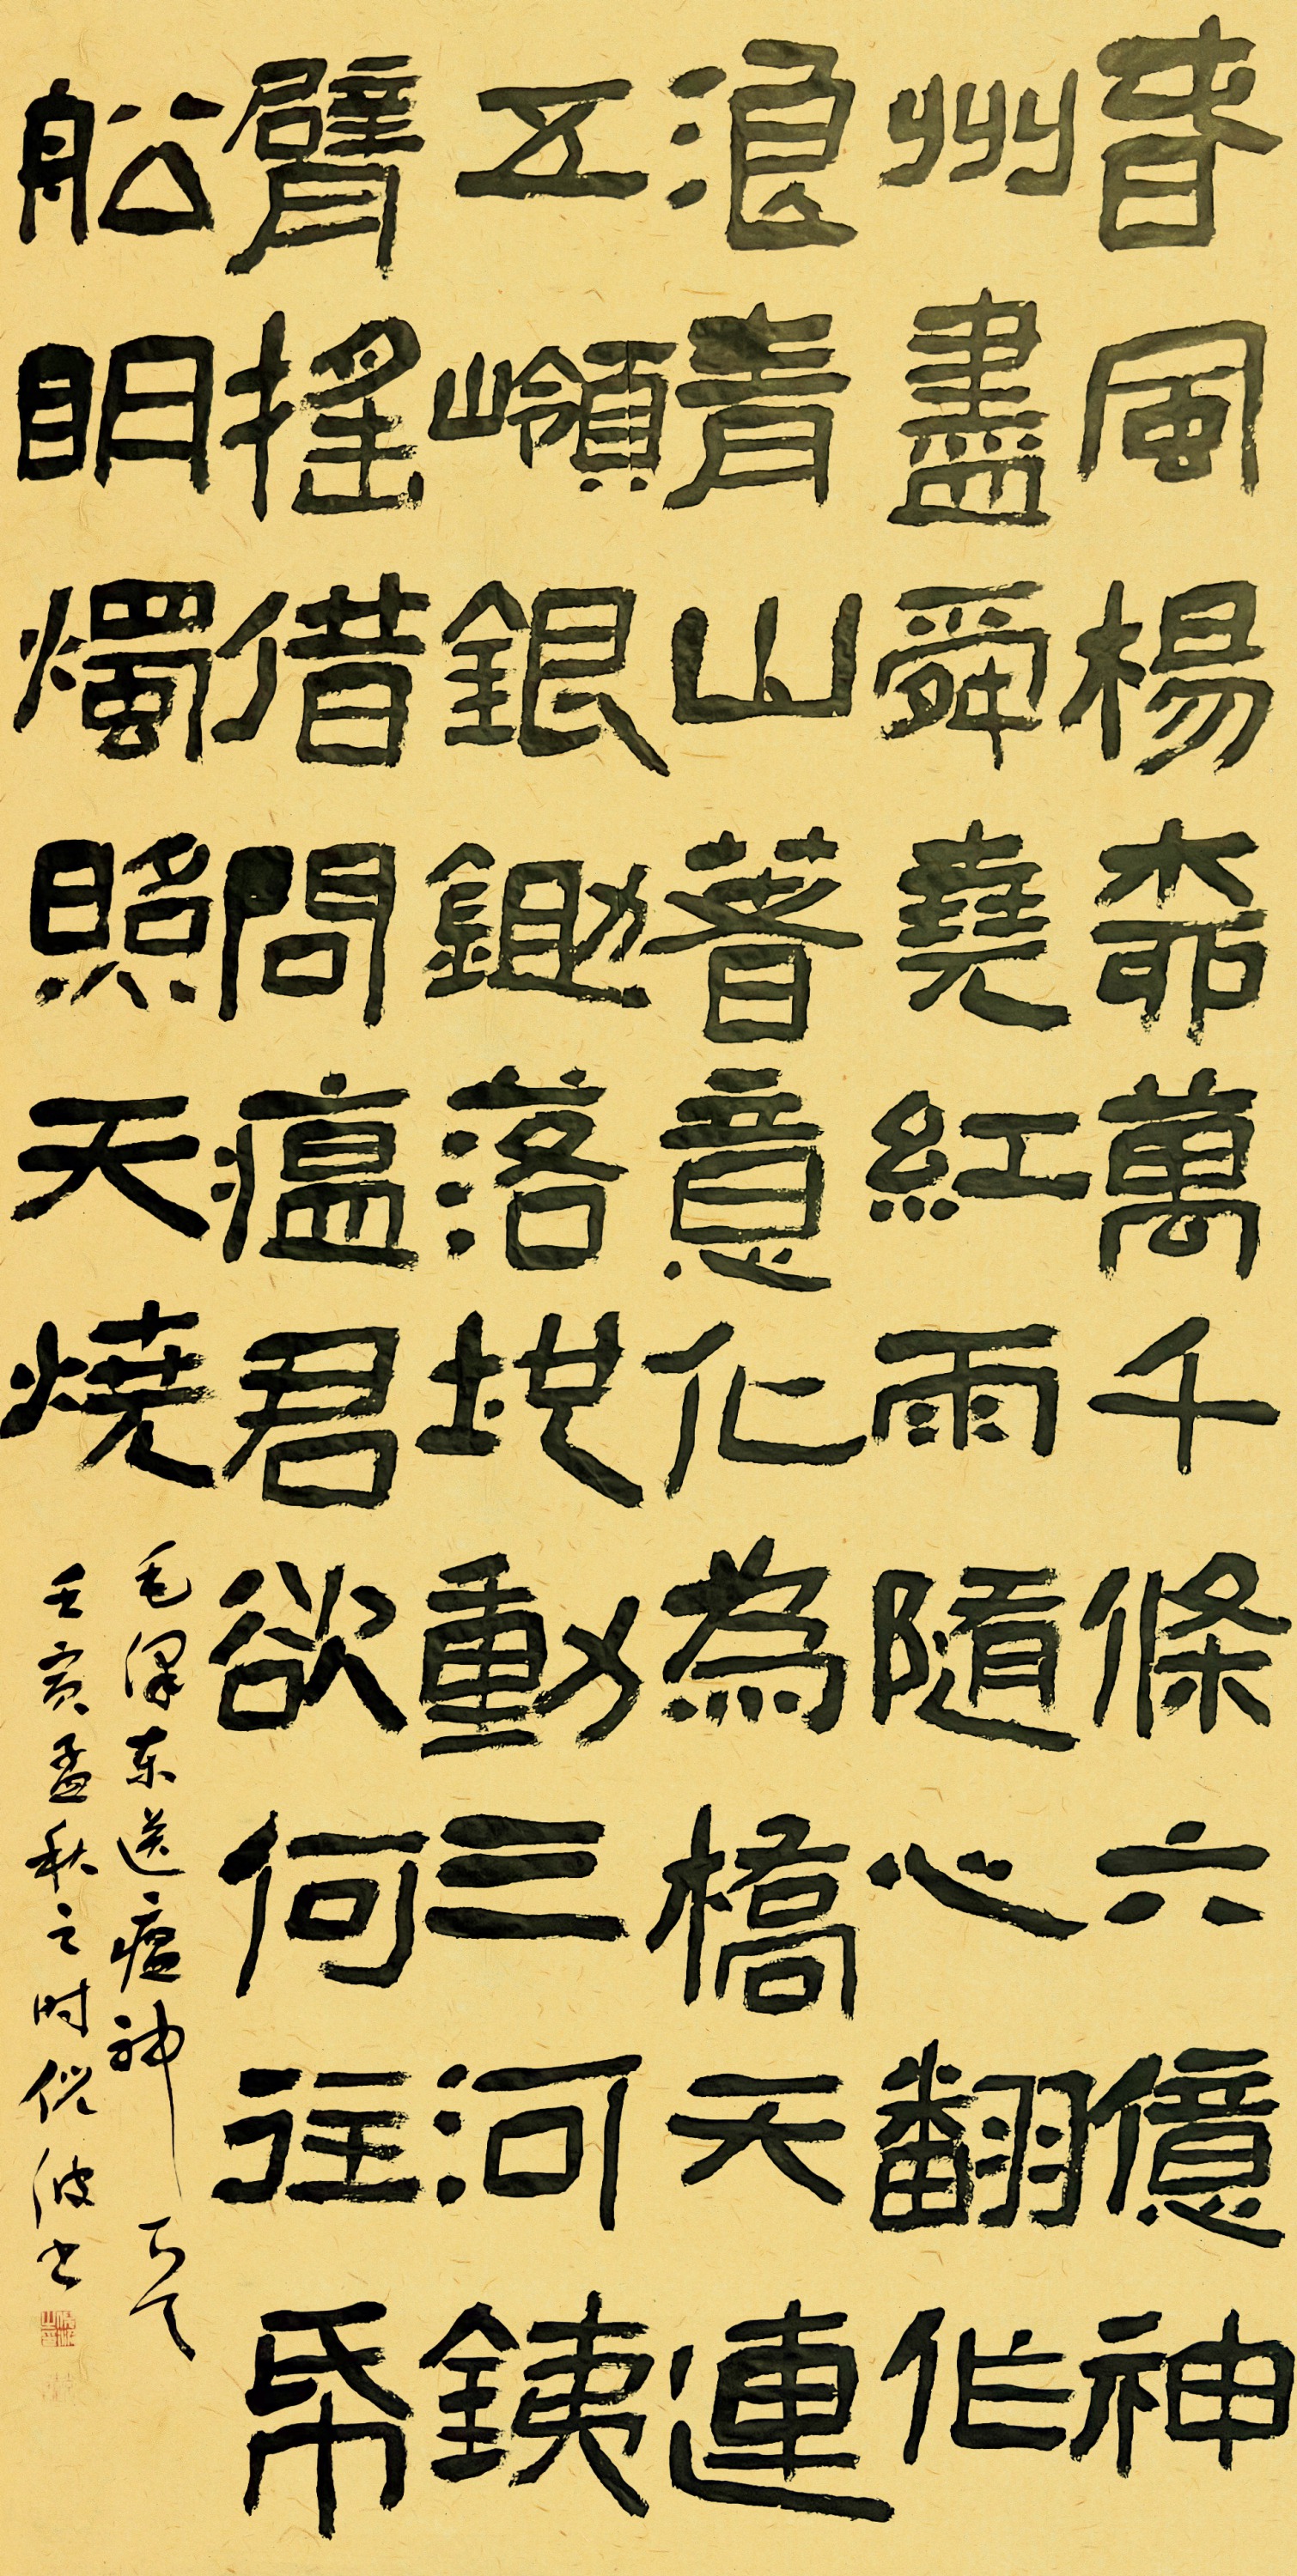 春風楊柳萬千條六億神
州盡舜堯紅雨隨心翻作
浪青山著意化為橋天連
五嶺銀鋤落地動三河銕
臂搖借問瘟君欲何往帋
舩眀燭照天燒
毛泽东送瘟神其二
壬寅孟秋之时波书